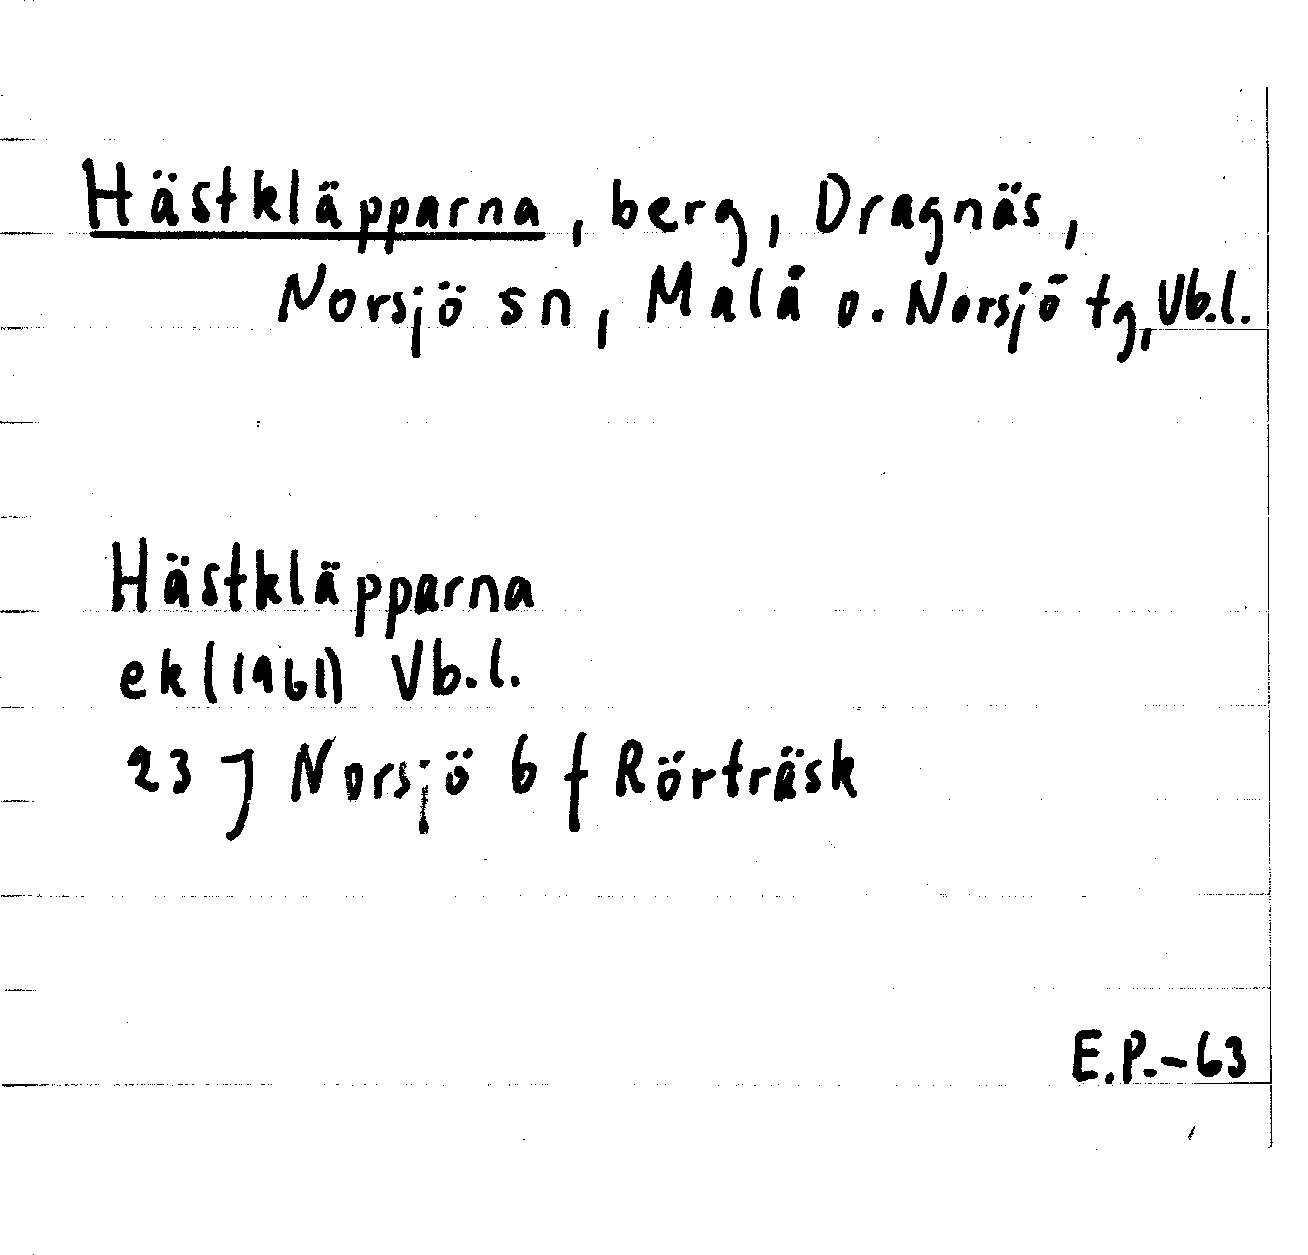 Hästkläpparna, berg, Dragnäs,
Norsjö sn, Malå o. Norsjö tg, Vb.l.
Hästkläpparna
ek (1961) Vb.l.
23 J Norsjö 6 f Rörträsk
E.P.-63